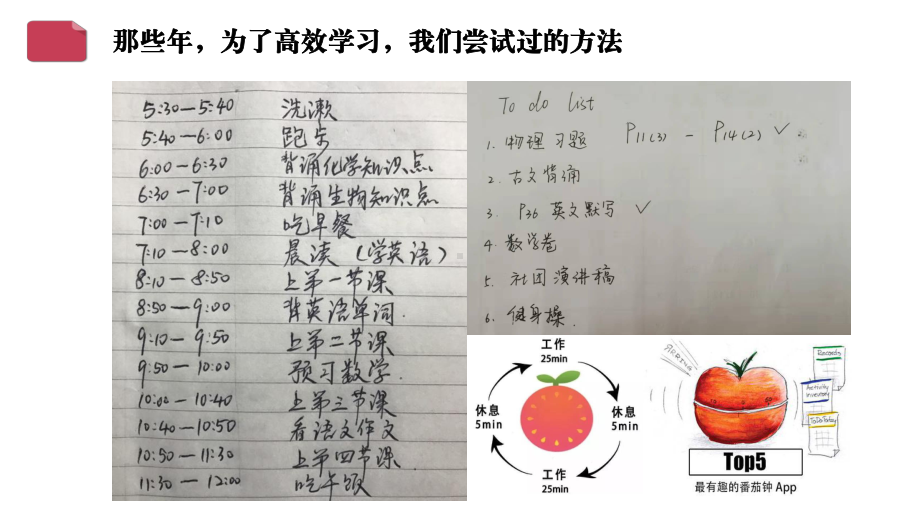 那些年，为了高效学习，我们尝试过的方法
5:30—5:40 洗漱
5:40—6:00 跑步
6:00—6:30 背诵化学知识点
6:30—7:00 背诵生物知识点
7:00—7:10 吃早餐
7:10—8:00 晨读（学英语）
8:10—8:50 上第一节课
8:50—9:00 背英语单词.
9:10—9:50 上第二节课
9:50—10:00 预习数学.
10:00—10:40 上第三节课
10:40—10:50 看语文作文
10:50—11:30 上第四节课
11:30—12:00 吃午饭
To do list
1. 物理习题 P11(3) — P14(2) ✓
2. 古文背诵
3. P36 英文默写 ✓
4. 数学卷
5. 社团演讲稿
6. 健身操.
工作
25min
休息
5min
工作
25min
休息
5min
RRRING
Records
Activity
inventory
ToDoToday
Top5
最有趣的番茄钟 App